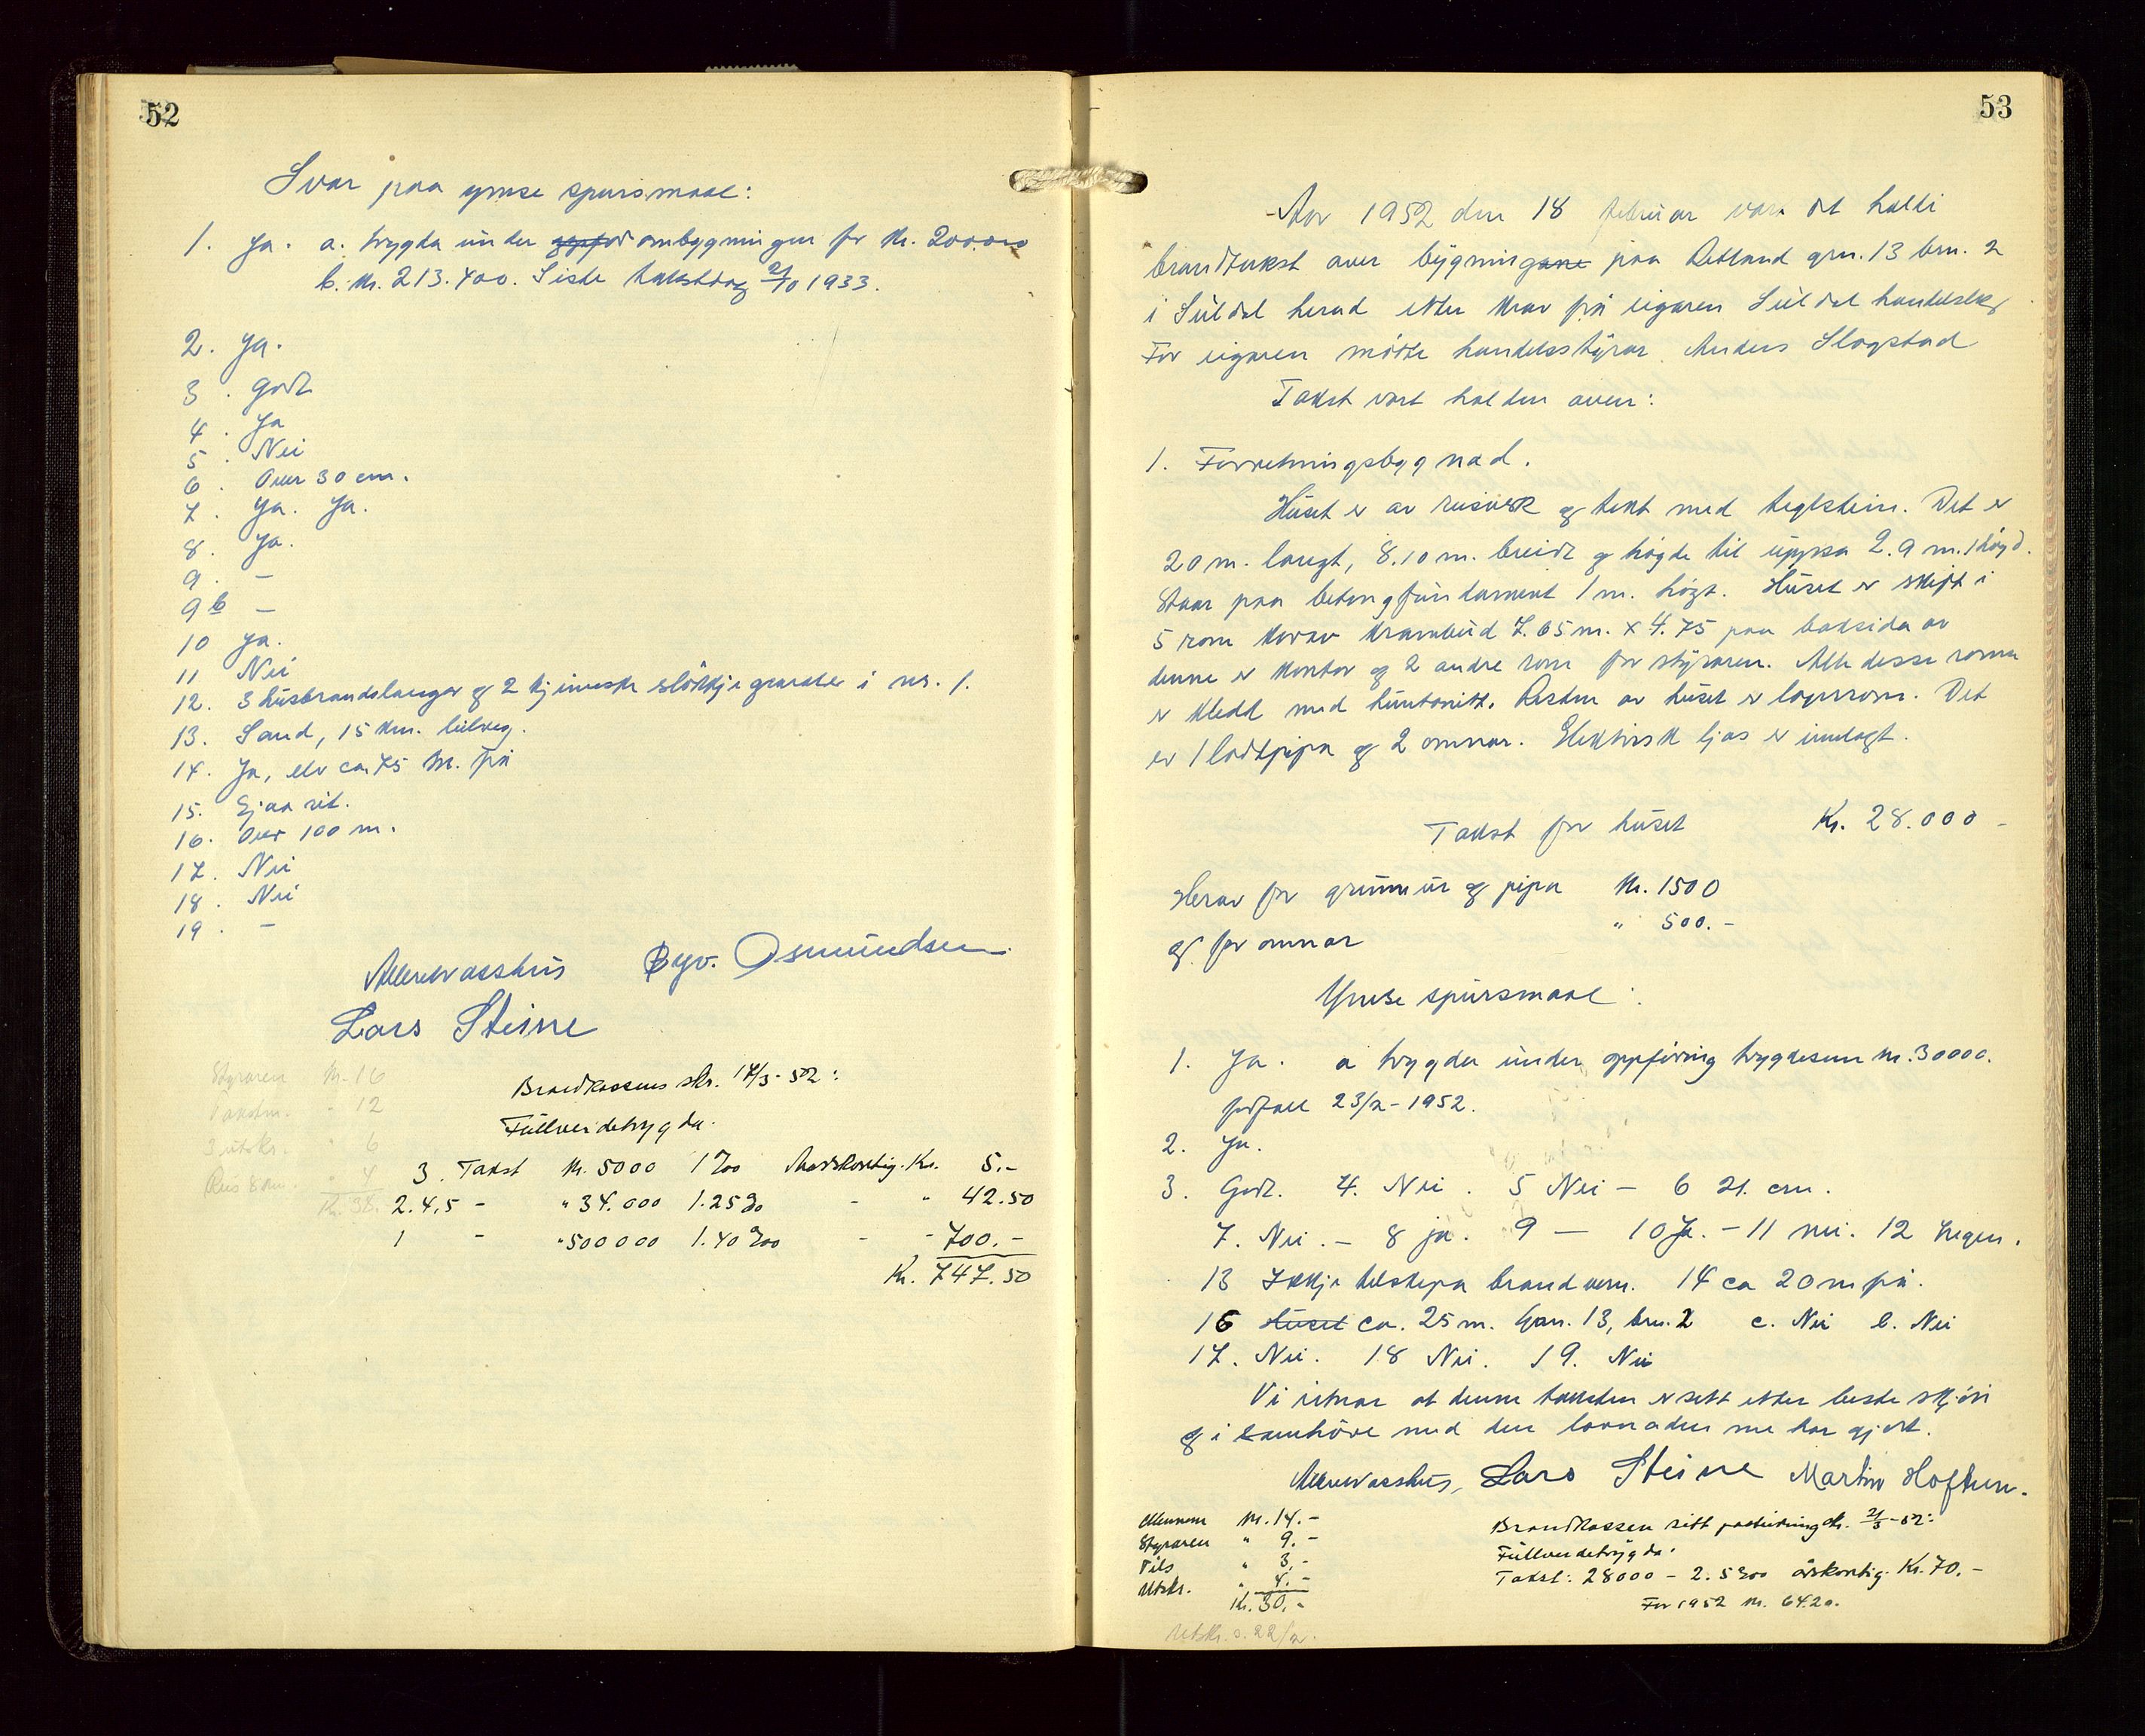 52
Svar paa ymse spursmaal:
1. Ja. a. trygda under ombygningen for kr. 200.000
b. kr. 213.400. Siste takstdag 21/10 1933.
2. Ja.
3. Godt
4. Ja
5. Nei
6. Over 30 cm.
7. Ja. Ja.
8. Ja.
9. –
9b –
10 Ja.
11 Nei
12. 3 husbrandslanger og 2 kjemiske slökkjegreider i nr. 1.
13. Sand, 15 km. bilveg.
14. Ja, elv ca 75 m. frå
15. Sjaa rit.
16. Over 100 m.
17. Nei
18. Nei
19. –
Øyv. Osmundsen
Lars Steine
Styraren kr. 16
Takstm. " 12
3 utskr. " 6
" 4
Kr. 38.
Brandkassens skr. 17/3-52:
Fullverdetrygda.
3. Takst kr. 5000 1‰ Aarskontig. Kr. 5.-
2.4.5 - " 34.000 1.25‰ - " 42.50
1 - " 500000 1.40‰ - - 700.-
Kr. 747.50
53
Aar 1952 den 18 februar vart det halde
brandtakst over bygningane paa Retland gnr. 13 bnr. 2
i Suldal herad etter krav frå eigaren Suldal handelslag
For eigaren møtte handelsstyrar Anders Slogstad
Takst vart halden over:
1. Forretningsbygnad.
Huset er av reisverk og tekt med teglstein. Det er
20 m. langt, 8.10 m. breidt og högde til uppsa 2.9 m. 1 högd.
Staar paa betongfundament 1 m. högt. Huset er skift i
5 rom korav krambud 7.65 m. x 4.75 paa baksida av
denne er kontor og 2 andre rom for styraren. Alle desse romma
er kledd med huntonitt. Resten av huset er lagerrom. Det
er 1 lodtpipa og 2 omnar. Elektrisk ljos er innlagt.
Takst for huset Kr. 28.000 -
Herav for grunnmur og pipa kr. 1500
og for omnar " 500.-
Ymse spursmaal:
1. Ja. a trygda under oppføring trygdesum kr. 30000.
forfall 23/2-1952.
2. Ja.
3. Godt. 4. Nei. 5 Nei – 6 21. cm.
7. Nei. – 8 ja. 9 – 10 Ja. – 11 nei. 12 Ingen.
13 Ikkje telskipa brandvern. 14 ca 20 m frå.
16 Huset ca. 25 m. Gnr. 13, bnr. 2 c. Nei b. Nei
17. Nei. 18 Nei. 19. Nei
Vi vitnar at denne taksten er sett etter beste skjøn
og i samhöve med den lovnaden me har gjort.
Lars Steine Martin Hoftun.
Mennene kr. 14.-
Styraren " 9.-
Tils " 3.-
Utskr. " 4.-
Kr. 30.-
Utskr. s. 22/2.
Brandkassen sitt skr. 21/3-52:
Fullverdetrygda.
Takst: 28000 - 2.5‰ årskontig. Kr. 70.-
For 1952 kr. 64.20.